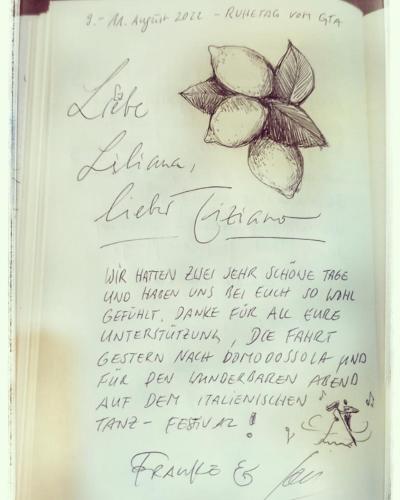 9.- 11. August 2022 - RUHETAG VOM GTA
Liebe
Liliana,
lieber Tiziano
WIR HATTEN ZWEI SEHR SCHÖNE TAGE
UND HABEN UNS BEI EUCH SO WOHL
GEFÜHLT. DANKE FÜR ALL EURE
UNTERSTÜTZUNG, DIE FAHRT
GESTERN NACH DOMODOSSOLA UND
FÜR DEN WUNDERBAREN ABEND
AUF DEM ITALIENISCHEN
TANZ-FESTIVAL!
FRAUKE &